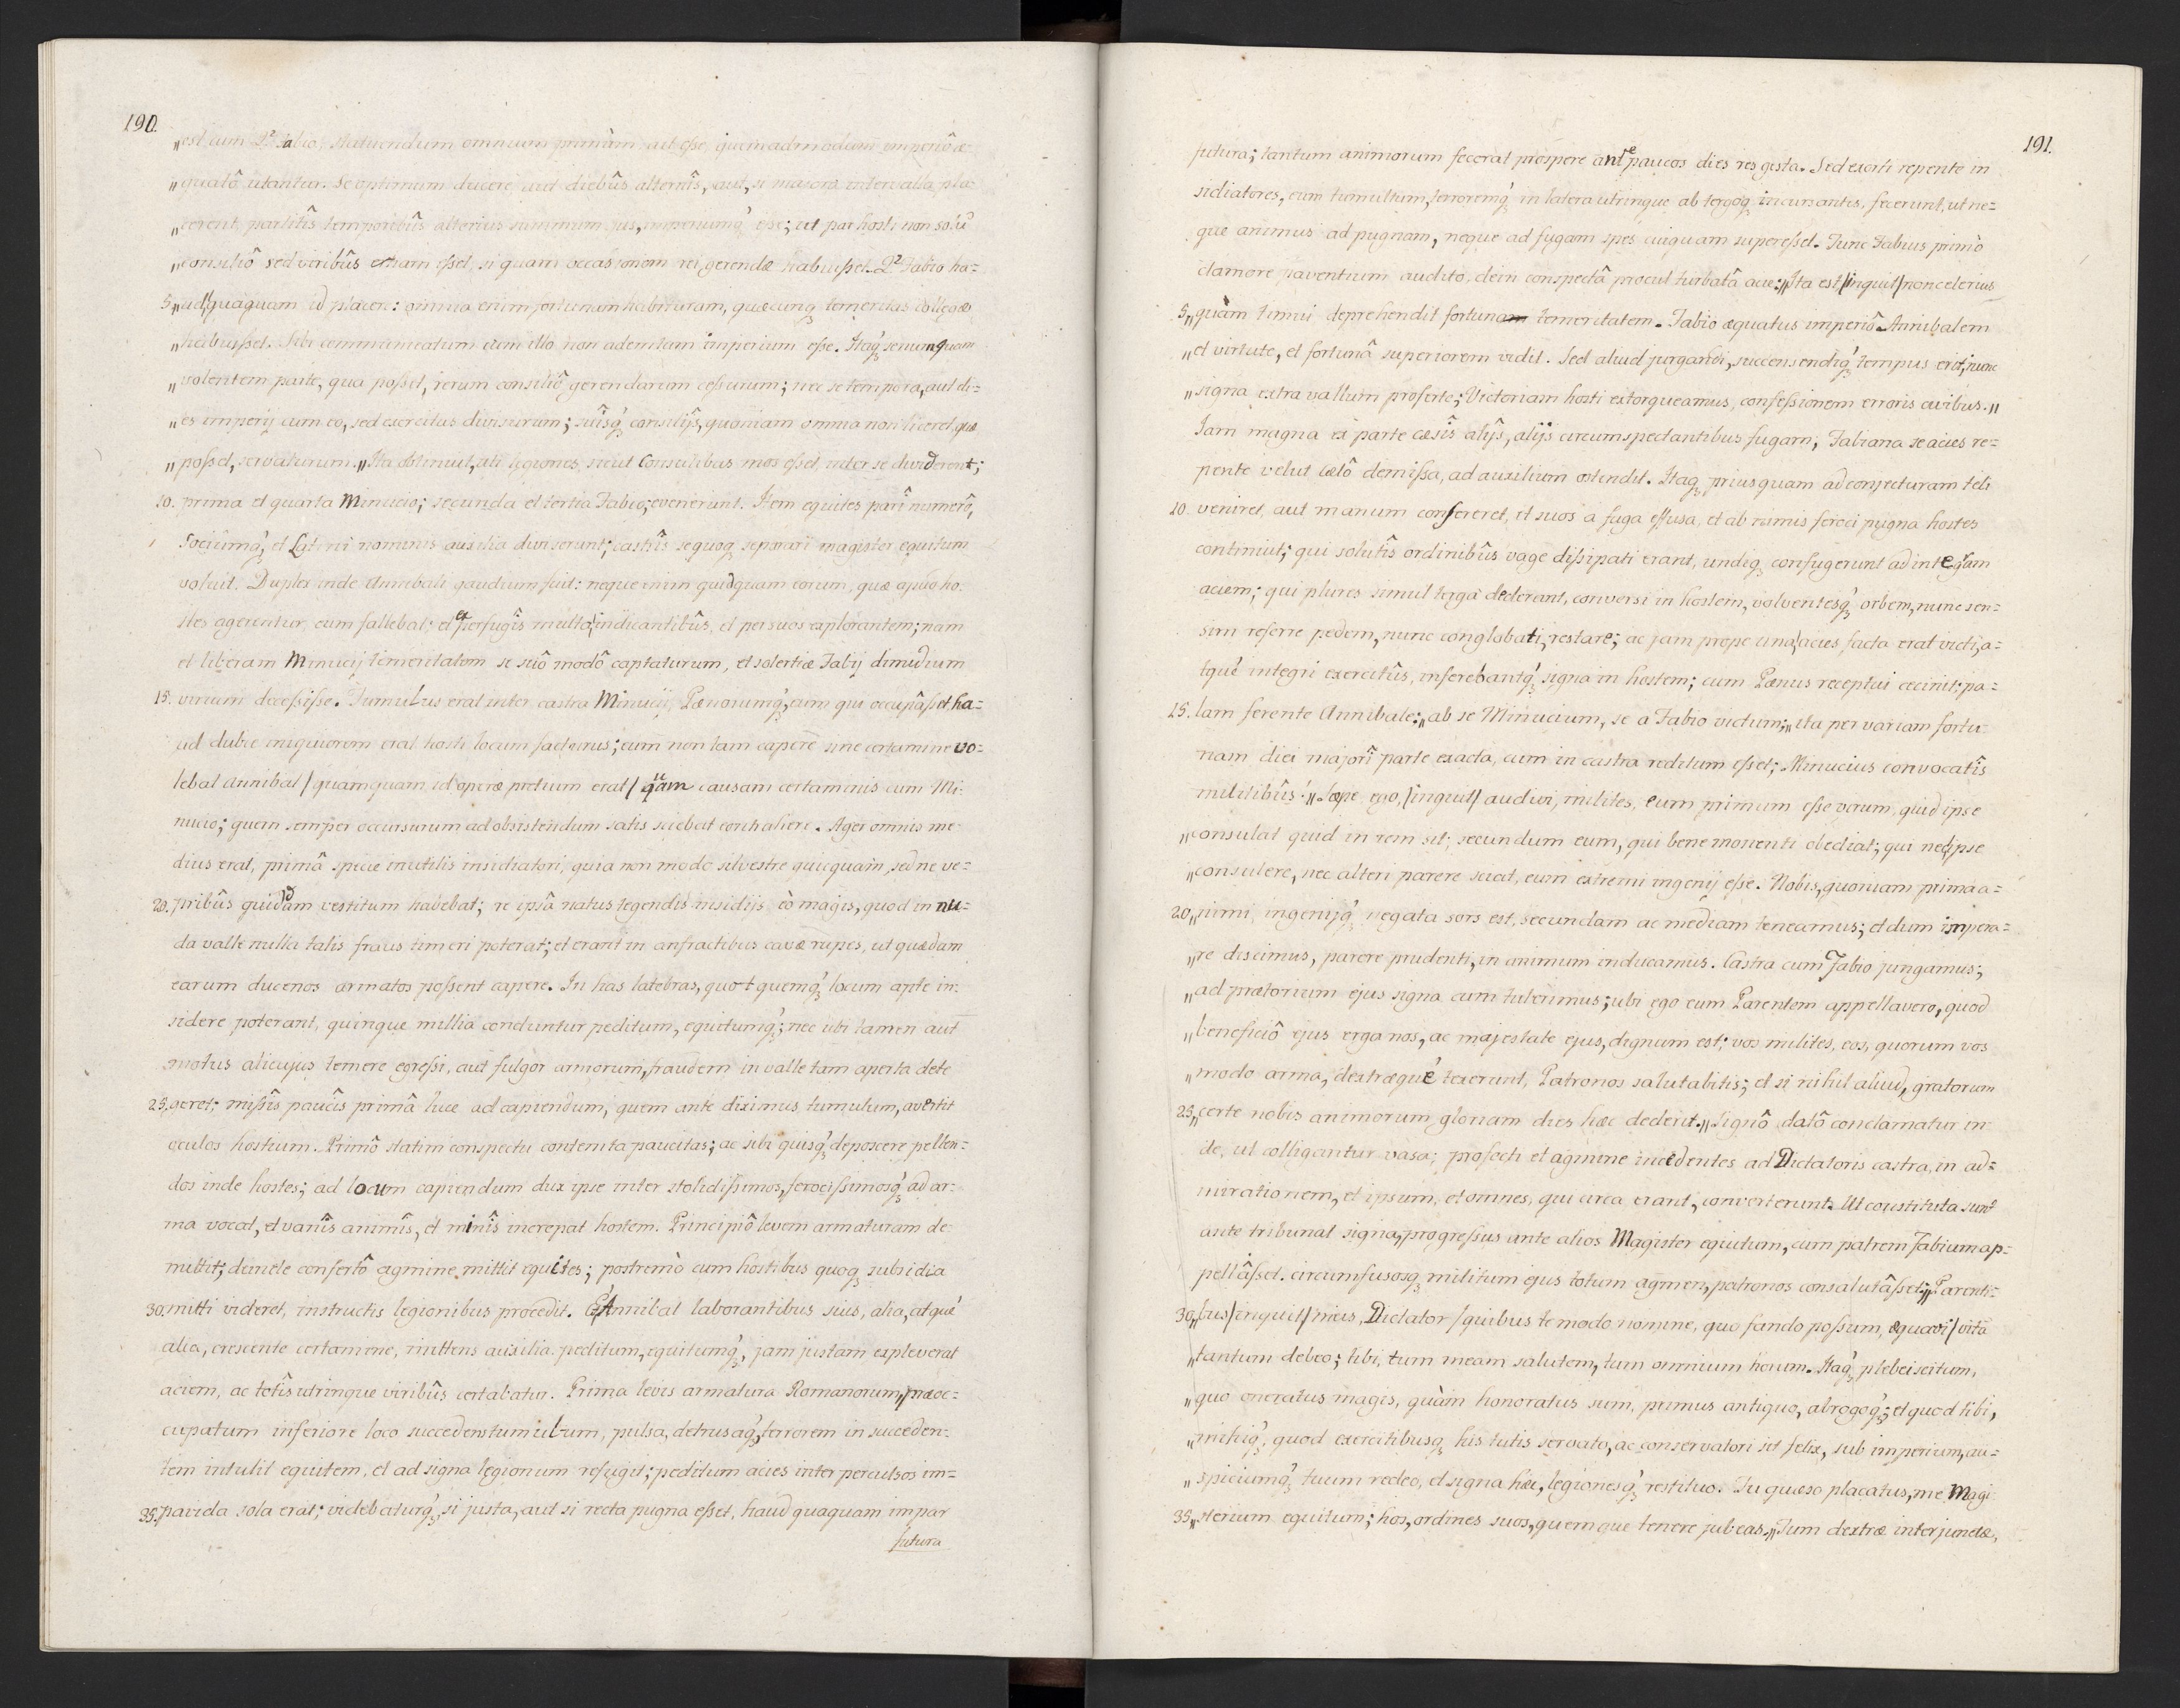 190.
„est cum Q? Fabio, statuendum omnium primùm aut esse, quemadmodum imperiô æ-
„quatô utantur. Se optimum ducere aut diebûs alternîs, aut, si majora intervalla pla-
„cerent, partitîs temporibûs alterius summum jus, imperiumq́ꝫ esse; ut par hosti non solũ
„consiliô sed viribûs etiam esset, si quam occasionem rei gerendæ habuisset. Q? Fabio ha=
5. „ud quaquam id placere: omnia enim fortunam habituram, quæcunqꝫ temeritas collegæ
„habuisset. Sibi communicatum cum illo non ademtum imperium esse. Itaq́ꝫ se numquam
„volentem parte, qua posset, rerum consiliô gerendarum cessurum; nec se tempora, aut di=
„es imperij cum eo, sed exercitus divisurum; suîsq́ꝫ consilijs, quoniam omnia non liceret, quæ
„posset, servaturum.„ Ita obtinuit, uti legiones, sicut Consulibus mos esset, inter se dividerent;
10. prima et quarta Minucio; secunda et tertia Fabio; evenerunt. Item equites parî numerô,
Sociûmq́ꝫ, et Latini nominis auxilia diviserunt; castrîs se quoqꝫ separari magister equitum
voluit. Duplex inde Annibali gaudium fuit: neque enim quidquam eorum, quæ apud ho-
stes agerentur, eum fallebat; et et perfugîs multa indicantibûs, et per suos explorantem; nam
et liberam Minucij temeritatem se suô modô captaturum, et solertiæ Fabij dimidium
15. virium decessisse. Tumulus erat inter castra Minucij, Pænorumq́ꝫ, eum qui occupâsset ha=
ud dubie iniquiorem erat hosti locum facturus; eum non tam capere sine certamine vo=
lebat Annibal / quamquam id operæ pretium erat / quam causam certaminis cum Mi-
nucio; quem semper occursurum ad obsistendum satis sciebat contrahere. Ager omnis me-
dius erat, primâ specie inutilis insidiatori, quia non modo silvestre quicquam, sed ne ve=
20. pribûs quidam vestitum habebat; re ipsâ natus tegendis insidijs eò magis, quod in nu=
da valle nulla talis fraus timeri poterat; et erant in anfractibus cavæ rupes, ut quædam
earum ducenos armatos possent capere. In has latebras, quot quemq́ꝫ locum apte in-
sidere poterant, quinque millia conduntur peditum, equitumq́ꝫ; nec ubi tamen aut
motus alicujus temere egressi, aut fulgor armorum, fraudem in valle tam aperta dete
25. geret; missîs paucîs primâ luce ad capiendum, quem ante diximus, tumulum, avertit
oculos hostium. Primô statim conspectu contemta paucitas; ac sibi quisq́ꝫ deposcere pellen-
dos inde hostes; ad locum capiendum dux ipse inter stolidissimos, ferocissimosq́ꝫ ad ar-
ma vocat, et vanîs animîs, et minîs increpat hostem. Principiô levem armaturam de-
mittit; deinde confertô agmine mittit equites; postremò cum hostibus quoqꝫ subsidia
30. mitti videret, instructis legionibus procedit. Et Annibal laborantibus suis, alia, atque
alia, crescente certamine, mittens auxilia peditum, equitumq́ꝫ, jam justam expleverat
aciem, ac totîs utrinque viribûs certabatur. Prima levis armatura Romanorum, præoc=
cupatum inferiore loco succedens tumulum, pulsa, detrusaq́ꝫ, terrorem in succeden-
tem intulit equitem, et ad signa legionum refugit; peditum acies inter perculsos im=
35. pavida sola erat; videbaturq́ꝫ, si justa, aut si recta pugna esset, haud quaquam impar
futura
191.
futura; tantum animorum fecerat prospere ante paucos dies res gesta. Sed exorti repente in
sidiatores, eum tumultum, terroremq́ꝫ in latera utrinque ab tergoqꝫ incursantes, fecerunt, ut ne=
que animus ad pugnam, neque ad fugam spes cuiquam superesset. Tunc Fabius primò
clamore paventium audito, dein conspectâ procul turbatâ acie:„ Ita est /inquit/ non celerius
5. „quàm timui deprehendit fortunam temeritatem. Fabio æquatus imperiô Annibalem
„et virtute, et fortunâ superiorem vidit. Sed aliud jurgandi, succensendiq́ꝫ tempus erit; nunc
„signa extra vallum proferte; Victoriam hosti extorqueamus, confessionem erroris civibus.„
Jam magna ex parte cæsîs alijs, alijs circumspectantibus fugam, Fabiana se acies re=
pente velut cœlô demissa, ad auxilium ostendit. Itaqꝫ priusquam ad conjecturam teli
10. veniret, aut manum consereret, et suos a fuga effusa, et ab nimis feroci pugna hostes
continiuit; qui solutîs ordinibûs vage dissipati erant, undiqꝫ confugerunt ad integram
aciem; qui plures simul terga dederant, conversi in hostem, volventesq́ꝫ orbem, nunc sen=
sim referre pedem, nunc conglobati, restare; ac jam prope una acies facta erat victi, a=
tque integri exercitûs, inferebantq́ꝫ signa in hostem; cum Pænus receptui cecinit; pa=
15. lam ferente Annibale:„ ab se Minucium, se a Fabio victum;„ ita per variam fortu-
nam diei majorî parte exacta, cum in castra reditum esset; Minucius convocatîs
militibûs:„ Sæpe ego, /inquit/ audivi, milites, eum primum esse virum, quid ipse
„consulat quid in rem sit; secundum eum, qui bene monenti obediat; qui nec ipse
„consulere, nec alteri parere sciat, eum extremi ingenij esse. Nobis, quoniam prima a=
20. „nimi, ingenijq́ꝫ negata sors est, secundam ac mediam teneamus; et dum impera=
„re discimus, parere prudenti, in animum inducamus. Castra cum Fabio jungamus;
„ad prætorium ejus signa cum tulerimus; ubi ego eum Parentem appellavero, quod
„beneficiô ejus erga nos, ac majestate ejus, dignum est; vos milites, eos, quorum vos
„modo arma, dextræque texerunt, Patronos salutabitis; et si nihil aliud, gratorum
25. „certe nobis animorum gloriam dies hæc dederit.„ Signô datô conclamatur in-
de, ut colligantur vasa; profecti et agmine incedentes ad Dictatoris castra, in ad=
mirationem, et ipsum, et omnes, qui circa erant, converterunt. Ut constituta sunt
ante tribunal signa, progressus ante alios Magister equitum, cum patrem Fabium ap=
pellâsset. circumfusosqꝫ militum ejus totum agmen, patronos consalutâsset;„ Parenti-
30. „bus /inquit/ meis, Dictator / quibus te modo nomine, quo fando possum, æquavi / vita
„tantum debeo; tibi, tum meam salutem, tum omnium horum. Itaq́ꝫ plebeiscitum,
„quo oneratus magis, quàm honoratus sum, primus antiquo, abrogoq́ꝫ; et quod tibi,
„mihiq́ꝫ, quod exercitibusqꝫ his tutis servato, ac conservatori sit felix, sub imperium, au=
„spiciumq́ꝫ tuum redeo, et signa hæc, legionesq́ꝫ restituo. Tu quæso placatus, me Magi
35. „sterium equitum; hos, ordines suos, quemque tenere jubeas.„ Tum dextræ interjunctæ,